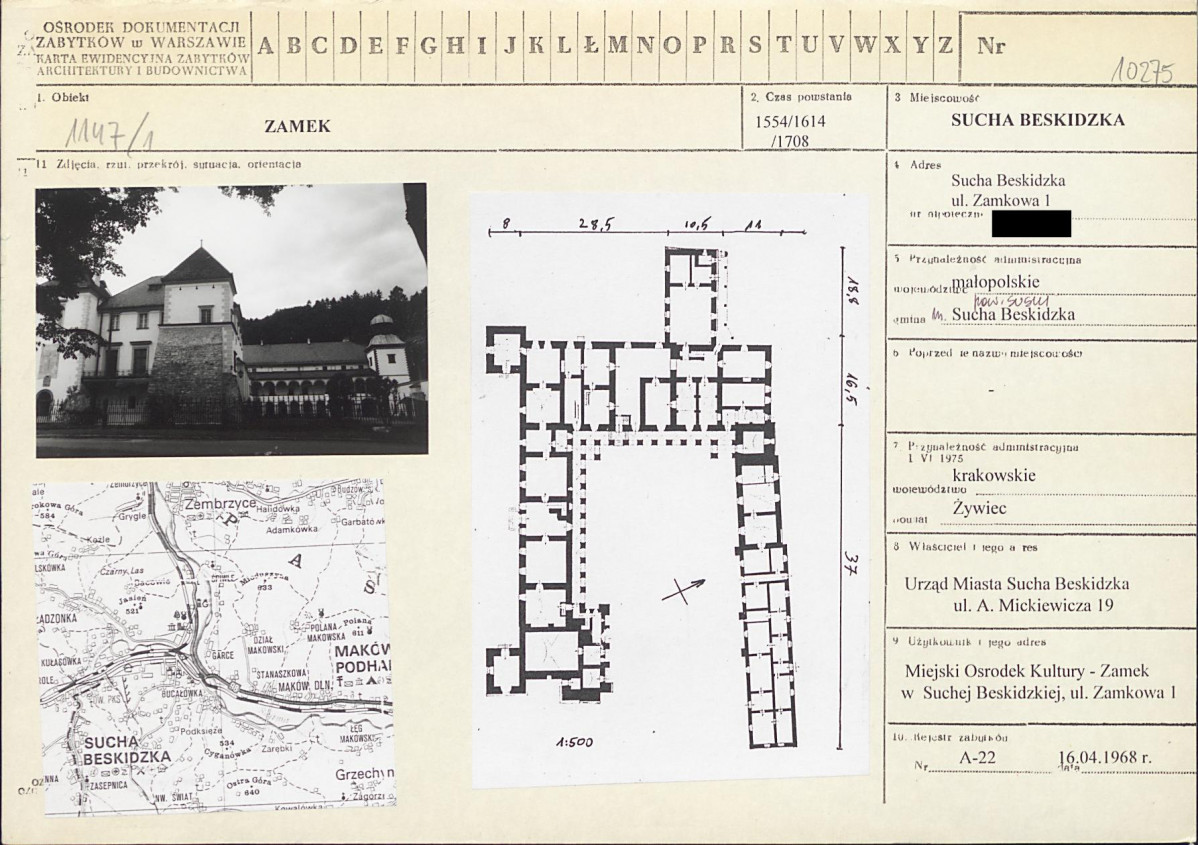 OŚRODEK DOKUMENTACJI
ZABYTKÓW w WARSZAWIE
KARTA EWIDENCYJNA ZABYTKÓW
ARCHITEKTURY I BUDOWNICTWA
A B C D E F G H I J K L Ł M N O P R S T U V W X Y Z
Nr
10275
1. Obiekt
1147/1
ZAMEK
2. Czas powstania
1554/1614
/1708
3 Miejscowość
SUCHA BESKIDZKA
4 Adres
Sucha Beskidzka
ul. Zamkowa 1
5 Przynależność administracyjna
województwo małopolskie
pow. suski
gmina m. Sucha Beskidzka
6 Poprzednie nazwy miejscowości
-
7 Przynależność administracyjna
1 VI 1975
krakowskie
województwo
Żywiec
powiat
8 Właściciel i jego adres
Urząd Miasta Sucha Beskidzka
ul. A. Mickiewicza 19
9 Użytkownik i jego adres
Miejski Osrodek Kultury - Zamek
w Suchej Beskidzkiej, ul. Zamkowa 1
10. Rejestr zabytków
Nr A-22 16.04.1968 r.
data
11 Zdjęcia, rzut, przekrój, sytuacja, orientacja
8 28,5 10,5 11
18,5
16,5
37
1:500
Zembrzyce
Grygle
Hálidówka
Adamkówka
Garbatówk
Budzów
rokowa Góra
584
Kozle
Czarny Las
Gacowie
Jasień
521
633
ADZONKA
POLANA
MAKOWSKA
Polana
611
DZIAŁ
MAKOWSKI
GARCE
STANASZKOWA
MAKÓW DLN.
MAKÓW
PODHA
KUŁAGÓWKA
BUCAŁÓWKA
PKS
Podksięże
534
Cyganówka
Zarębki
ŁĘG
MAKOWSKI
SUCHA
BESKIDZKA
ZASEPNICA
NW. ŚWIAT
Ostra Góra
640
Grzechyn
Zagórz
Kowalówka
P
A
S